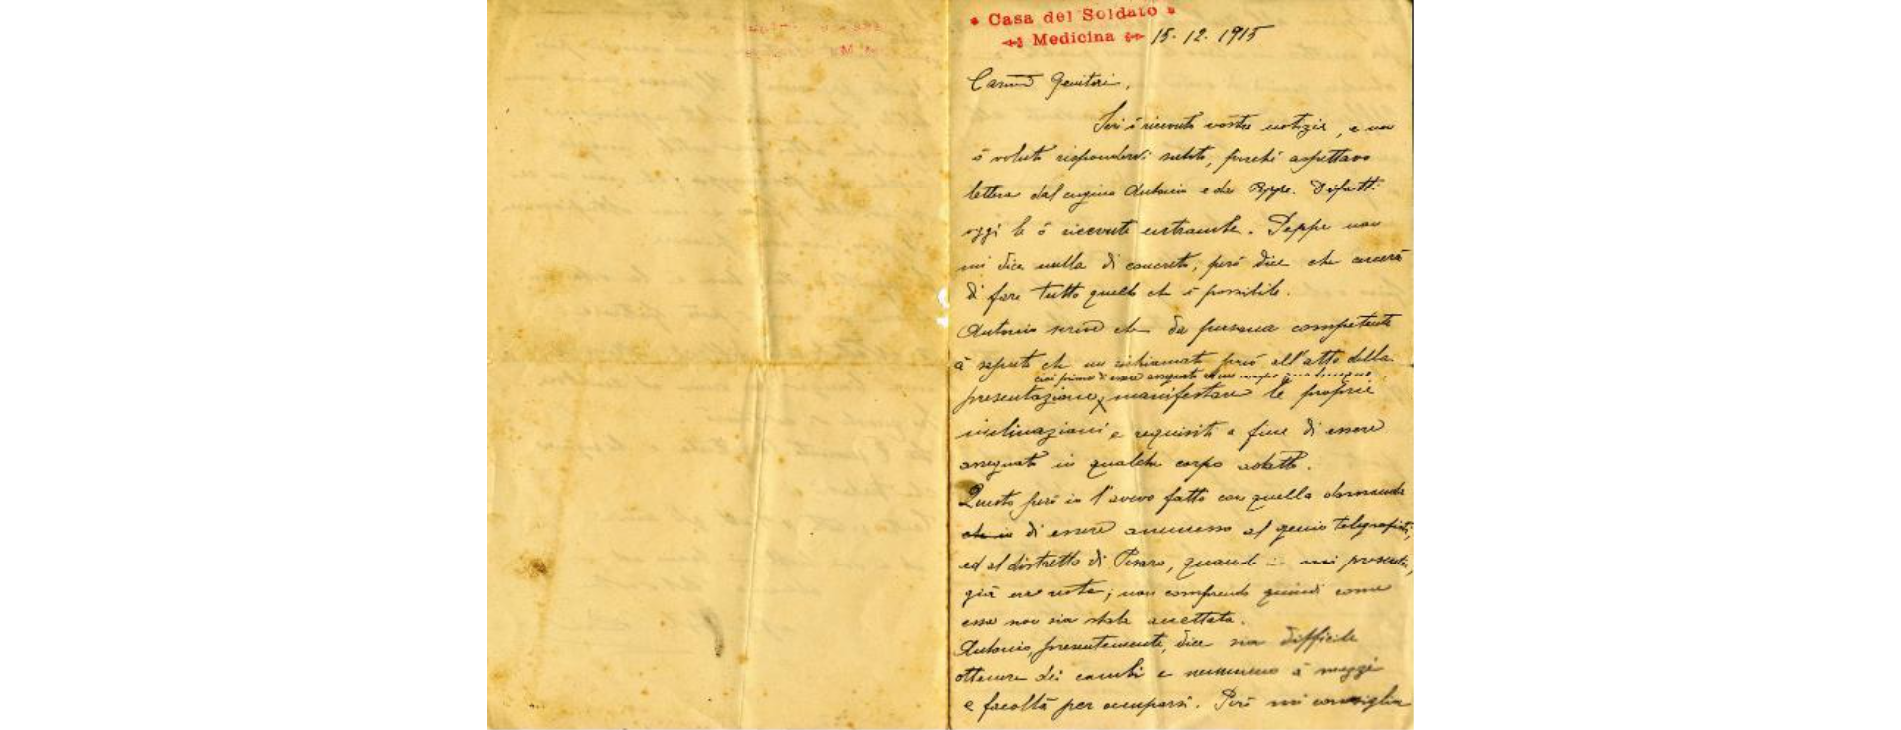 * Casa del Soldato *
Medicina 15.12.1915
Carmi Genitori,
Ieri ò ricevuto vostre notizie, e non
ò voluto rispondervi subito, perchè aspettavo
lettera dal cugino Antonio e da Peppe. Difatti
oggi le ò ricevute entrambe. Peppe non
mi dice nulla di concreto, però dice che cercerà
di fare tutto quello che è possibile.
Antonio scrive che da persona competente
à saputo che un richiamato può all'atto della
cioè prima di essere assegnato ad un
presentazione, manifestare le proprie
inclinazioni e requisiti a fine di essere
assegnato in qualche corpo adatto.
Questo però io l'avevo fatto con quella domanda
di essere ammesso al genio telegrafisti,
ed al distretto di Pesaro, quando mi presentai,
già era nota; non comprendo quindi come
essa non sia stata accettata.
Antonio, presentemente, dice sia difficile
ottenere dei cambi e nemmeno à mezzi
e facoltà per occuparsi. Però mi consiglia